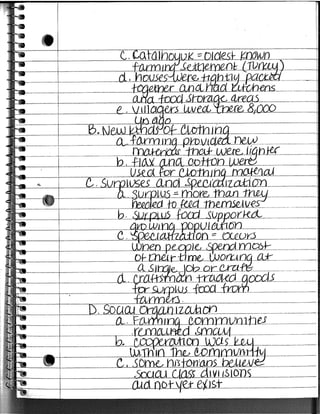 c. Catalhoyuk = oldest known
farming settlement (Turkey)
d. houses were tightly packed
together and had kitchens
and food storage areas
e. villagers lived there 8,000
yr ago
B. New kinds of clothing
a. farming provided new
materials that were lighter
b. flax and cotton were
used for clothing material
C. Surpluses and specialization
a. surplus = more than they
needed to feed themselves
b. surplus food supported
growing population
c. specialization = occurs
when people spend most
of their time working at
a single job or craft
d. craftsman traded goods
for surplus food from
farmers
D. Social Organization
a. Farming communities
remained small
b. cooperation was key
within the community
c. some historians believe
social class divisions
did not yet exist